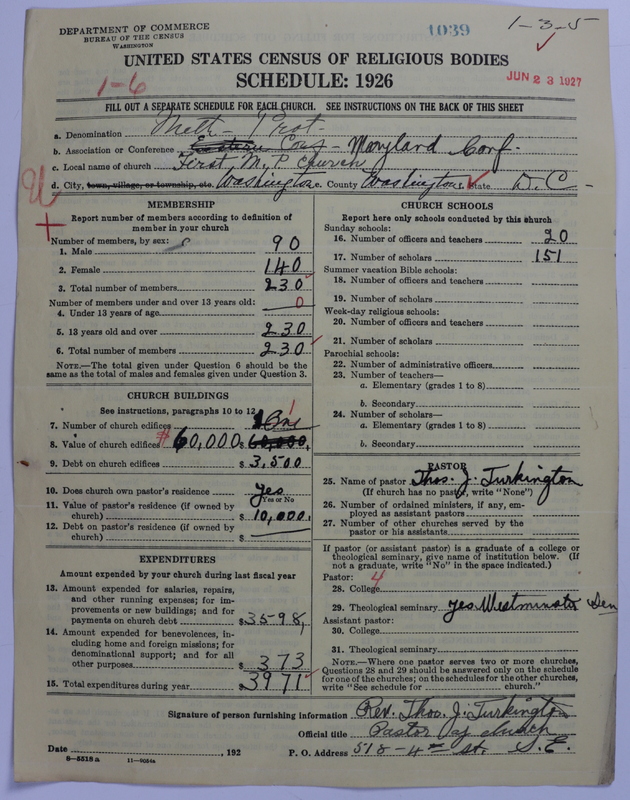 DEPARTMENT OF COMMERCE
BUREAU OF THE CENSUS
WASHINGTON
1039
1-3-5
UNITED STATES CENSUS OF RELIGIOUS BODIES
SCHEDULE: 1926
JUN 23 1927
1-6
FILL OUT A SEPARATE SCHEDULE FOR EACH CHURCH. SEE INSTRUCTIONS ON THE BACK OF THIS SHEET
a. Denomination Meth - Prot.
b. Association or Conference Eastern Conf - Maryland Conf.
c. Local name of church First M. P. Church
d. City, town, village, or township, etc. Washington e. County Washington f. State D. C -
MEMBERSHIP
Report number of members according to definition of
member in your church
Number of members, by sex:
1. Male 90
2. Female 140
3. Total number of members 230
Number of members under and over 13 years old:
4. Under 13 years of age 0
5. 13 years old and over 230
6. Total number of members 230
NOTE.—The total given under Question 6 should be
same as the total of males and females given under Question 3.
CHURCH BUILDINGS
See instructions, paragraphs 10 to 12
7. Number of church edifices One 1
8. Value of church edifices $60,000 $ 60,000,
9. Debt on church edifices $ 3,500
10. Does church own pastor's residence yes
Yes or No
11. Value of pastor's residence (if owned by
church) $ 10,000.
12. Debt on pastor's residence (if owned by
church) $
EXPENDITURES
Amount expended by your church during last fiscal year
13. Amount expended for salaries, repairs,
and other running expenses; for im-
provements or new buildings; and for
payments on church debt $3598,
14. Amount expended for benevolences, in-
cluding home and foreign missions; for
denominational support; and for all
other purposes $ 373
15. Total expenditures during year $3971
CHURCH SCHOOLS
Report here only schools conducted by this church
Sunday schools:
16. Number of officers and teachers 20
17. Number of scholars 151
Summer vacation Bible schools:
18. Number of officers and teachers
19. Number of scholars
Week-day religious schools:
20. Number of officers and teachers
21. Number of scholars
Parochial schools:
22. Number of administrative officers
23. Number of teachers—
a. Elementary (grades 1 to 8)
b. Secondary
24. Number of scholars—
a. Elementary (grades 1 to 8)
b. Secondary
PASTOR
25. Name of pastor Thos. J. Turkington
(If church has no pastor, write "None")
26. Number of ordained ministers, if any, em-
ployed as assistant pastors
27. Number of other churches served by the
pastor or his assistants
If pastor (or assistant pastor) is a graduate of a college or
theological seminary, give name of institution below. (If
not a graduate, write "No" in the space indicated.)
Pastor: 4
28. College
29. Theological seminary yes Westminster Sem
Assistant pastor:
30. College
31. Theological seminary
NOTE.—Where one pastor serves two or more churches,
Questions 28 and 29 should be answered only on the schedule
for one of the churches; on the schedules for the other churches,
write "See schedule for church."
Signature of person furnishing information Rev. Thos. J. Turkington
Official title Pastor of church
Date , 192 P. O. Address 518 - 4th St. S. E.
8-5318 a 11-9024a